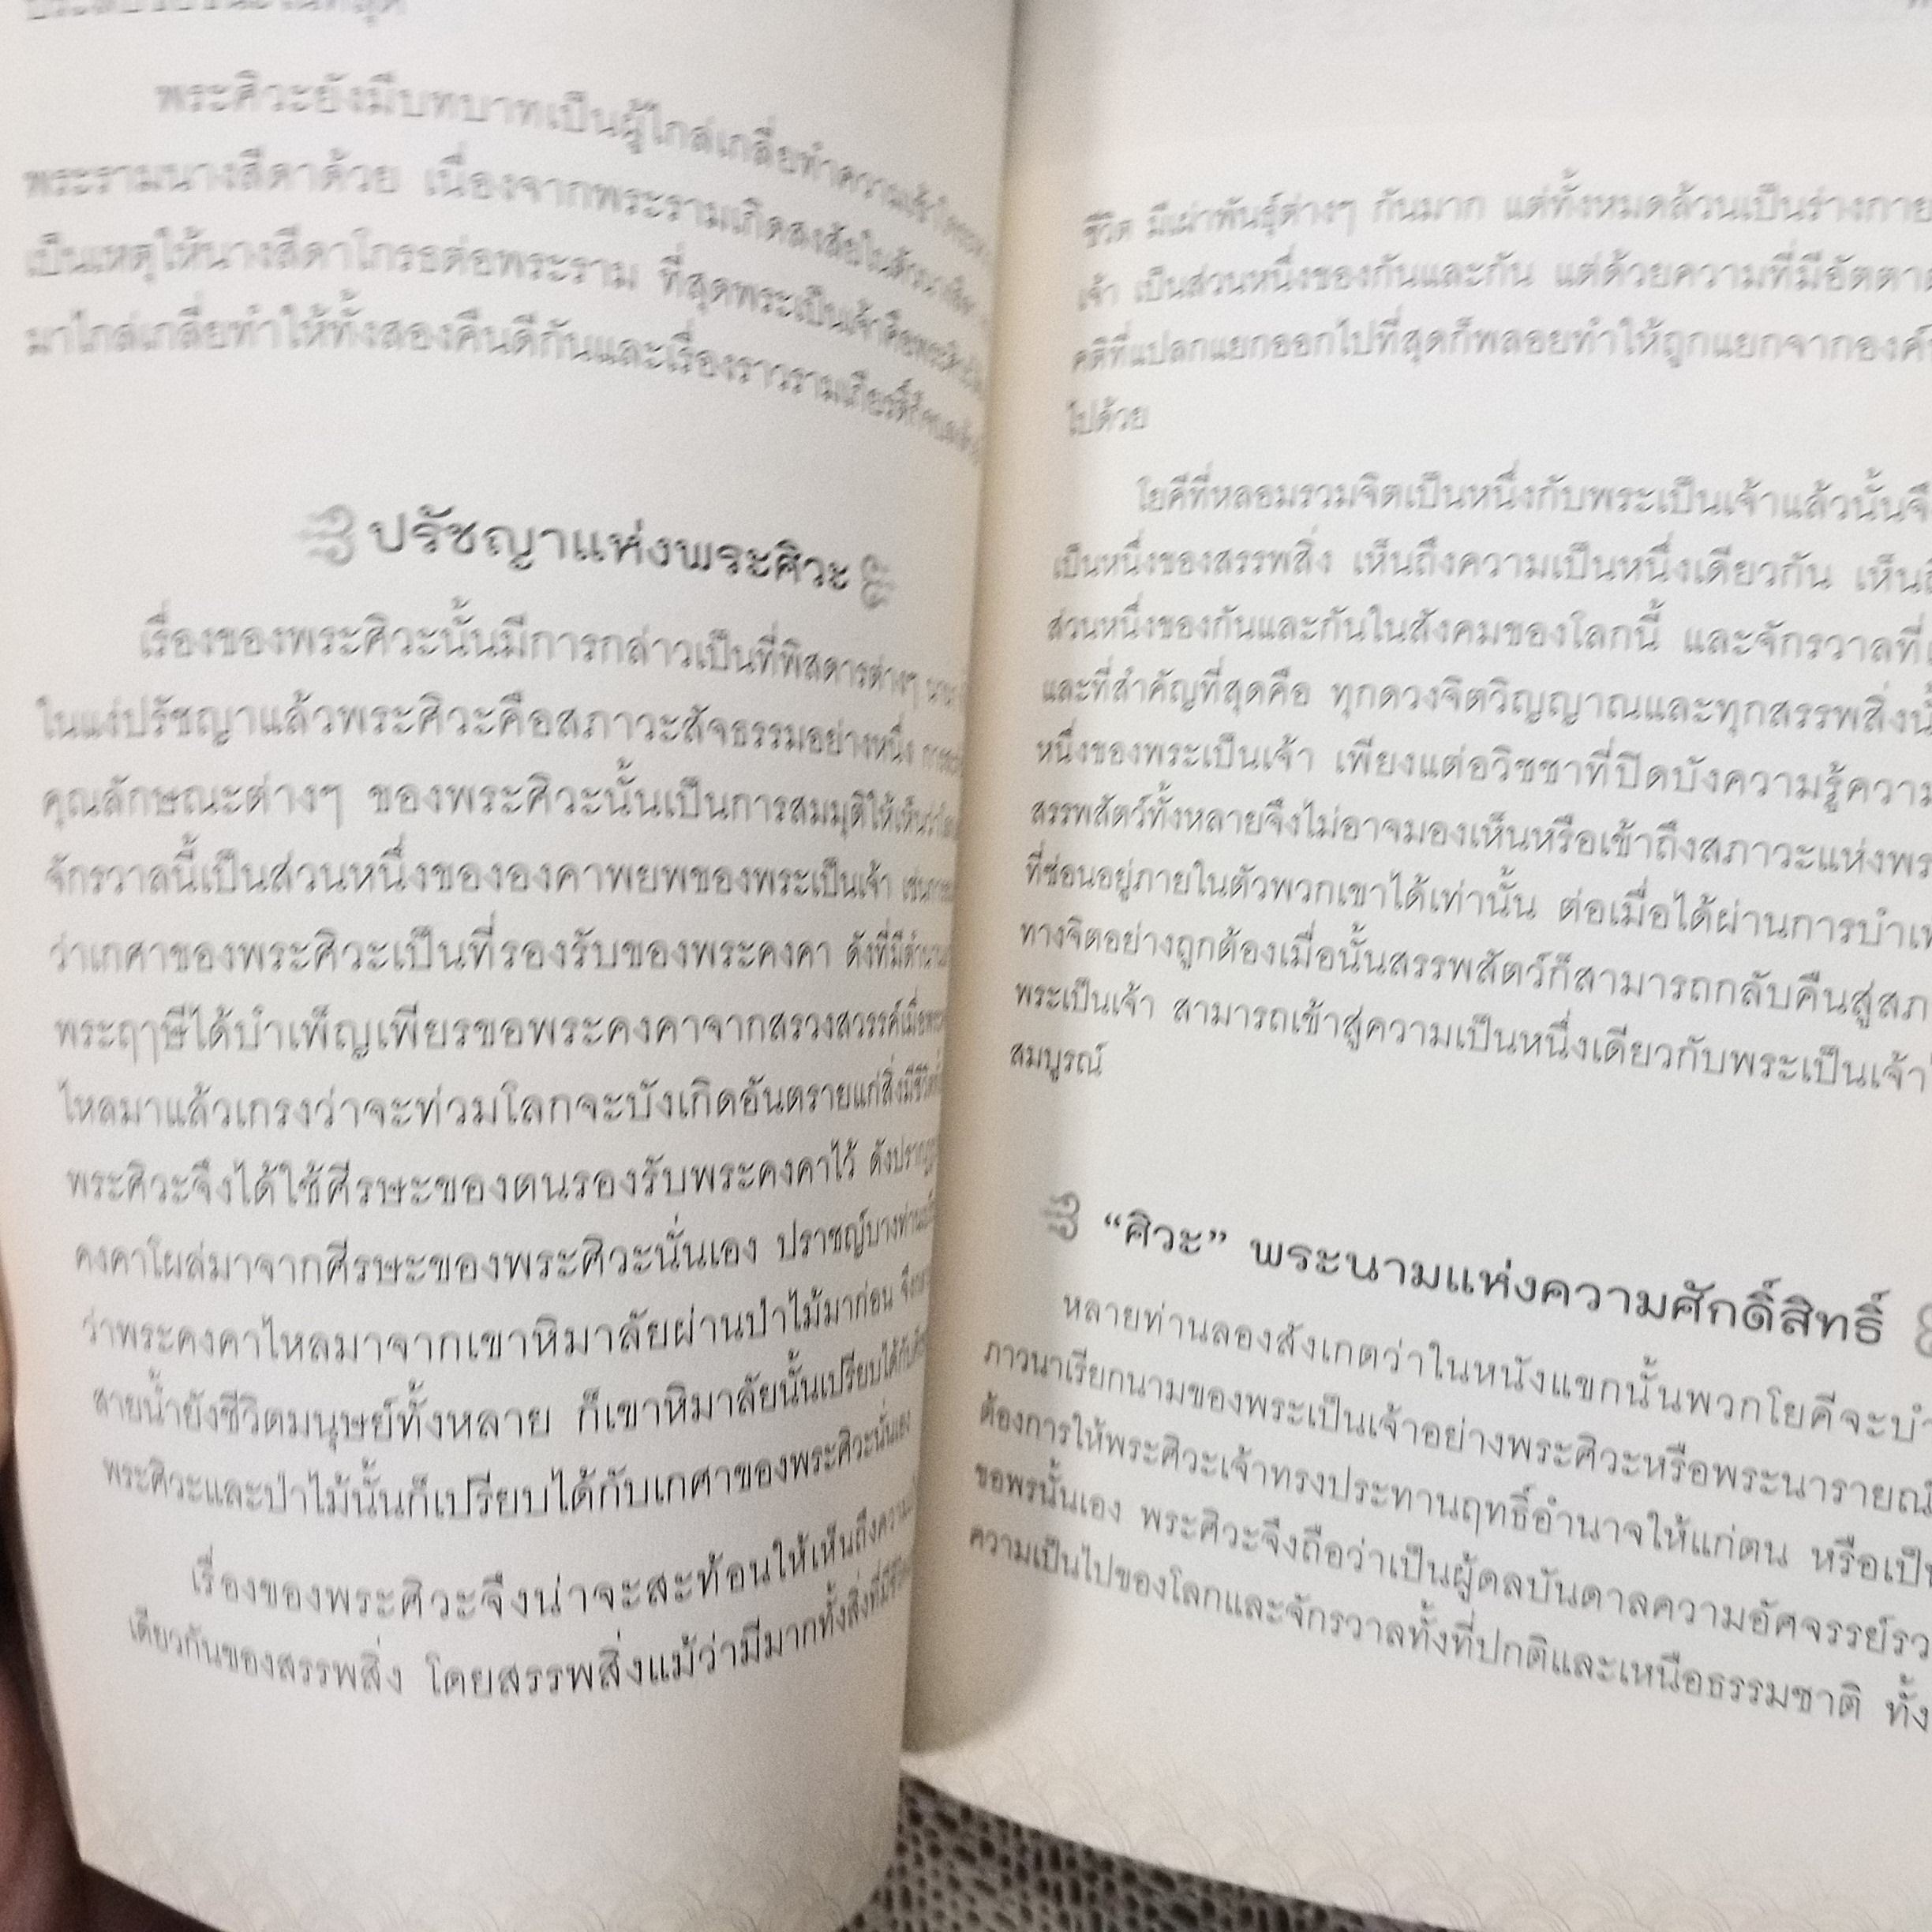 พระศิวะยังมีบทบาทเป็นผู้ไกล่เกลี่ยทำความเข้าใจ
พระรามนางสีดาด้วย เนื่องจากพระรามเกิดสงสัยในตัวนางสีดา
เป็นเหตุให้นางสีดาโกรธต่อพระราม ที่สุดพระเป็นเจ้าคือพระศิวะ
มาไกล่เกลี่ยทำให้ทั้งสองคืนดีกันและเรื่องราวรามเกียรติ์ก็จบลง
ปรัชญาแห่งพระศิวะ
เรื่องของพระศิวะนั้นมีการกล่าวเป็นที่พิสดารต่างๆ
ในแง่ปรัชญาแล้วพระศิวะคือสภาวะสัจธรรมอย่างหนึ่ง
คุณลักษณะต่างๆ ของพระศิวะนั้นเป็นการสมมุติให้เห็นว่า
จักรวาลนี้เป็นส่วนหนึ่งขององคาพยพของพระเป็นเจ้า เช่น
ว่าเกศาของพระศิวะเป็นที่รองรับของพระคงคา ดังที่มีตำนาน
พระฤๅษีได้บำเพ็ญเพียรขอพระคงคาจากสรวงสวรรค์เมื่อ
ไหลมาแล้วเกรงว่าจะท่วมโลกจะบังเกิดอันตรายแก่สิ่งมีชีวิต
พระศิวะจึงได้ใช้ศีรษะของตนรองรับพระคงคาไว้ ดังปรากฏ
คงคาโผล่มาจากศีรษะของพระศิวะนั่นเอง ปราชญ์บางท่าน
ว่าพระคงคาไหลมาจากเขาหิมาลัยผ่านป่าไม้มาก่อน
สายน้ำยังชีวิตมนุษย์ทั้งหลาย ก็เขาหิมาลัยนั้นเปรียบได้กับ
พระศิวะและป่าไม้นั้นก็เปรียบได้กับเกศาของพระศิวะนั่นเอง
เรื่องของพระศิวะจึงน่าจะสะท้อนให้เห็นถึงความ
เดียวกันของสรรพสิ่ง โดยสรรพสิ่งแม้ว่ามีมากทั้งสิ่งที่มีชีวิต
ชีวิต มีเผ่าพันธุ์ต่างๆ กันมาก แต่ทั้งหมดล้วนเป็นร่างกาย
เจ้า เป็นส่วนหนึ่งของกันและกัน แต่ด้วยความที่มีอัตตา
คติที่แปลกแยกออกไปที่สุดก็พลอยทำให้ถูกแยกจากองค์
ไปด้วย
โยคีที่หลอมรวมจิตเป็นหนึ่งกับพระเป็นเจ้าแล้วนั้นจึ
เป็นหนึ่งของสรรพสิ่ง เห็นถึงความเป็นหนึ่งเดียวกัน เห็น
ส่วนหนึ่งของกันและกันในสังคมของโลกนี้ และจักรวาลที่
และที่สำคัญที่สุดคือ ทุกดวงจิตวิญญาณและทุกสรรพสิ่ง
หนึ่งของพระเป็นเจ้า เพียงแต่อวิชชาที่ปิดบังความรู้ความ
สรรพสัตว์ทั้งหลายจึงไม่อาจมองเห็นหรือเข้าถึงสภาวะแห่งพร
ที่ซ่อนอยู่ภายในตัวพวกเขาได้เท่านั้น ต่อเมื่อได้ผ่านการบำเ
ทางจิตอย่างถูกต้องเมื่อนั้นสรรพสัตว์ก็สามารถกลับคืนสู่สภ
พระเป็นเจ้า สามารถเข้าสู่ความเป็นหนึ่งเดียวกับพระเป็นเจ้า
สมบูรณ์
“ศิวะ” พระนามแห่งความศักดิ์สิทธิ์
หลายท่านลองสังเกตว่าในหนังแขกนั้นพวกโยคีจะบำ
ภาวนาเรียกนามของพระเป็นเจ้าอย่างพระศิวะหรือพระนารายณ์
ต้องการให้พระศิวะเจ้าทรงประทานฤทธิ์อำนาจให้แก่ตน หรือเป็น
ขอพรนั้นเอง พระศิวะจึงถือว่าเป็นผู้ดลบันดาลความอัศจรรย์รว
ความเป็นไปของโลกและจักรวาลทั้งที่ปกติและเหนือธรรมชาติ ทั้ง